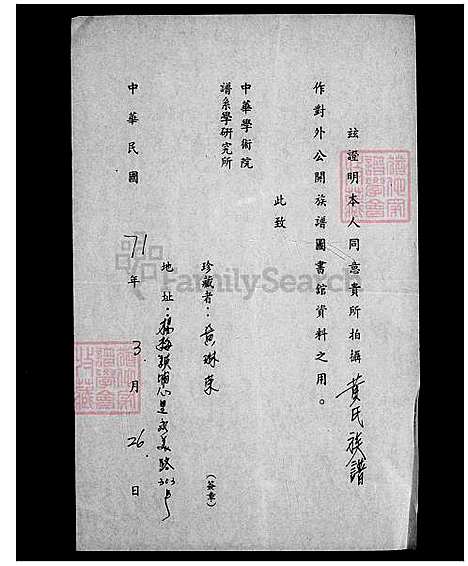 茲證明本人同意貴所拍攝黃氏族譜
作對外公開族譜圖書館資料之用。
此致
中華學術院
譜系學研究所
珍藏者：黃琳東（簽章）
地址：楊梅鎮 里永美路303號
中華民國71年3.月26.日
FamilySearch